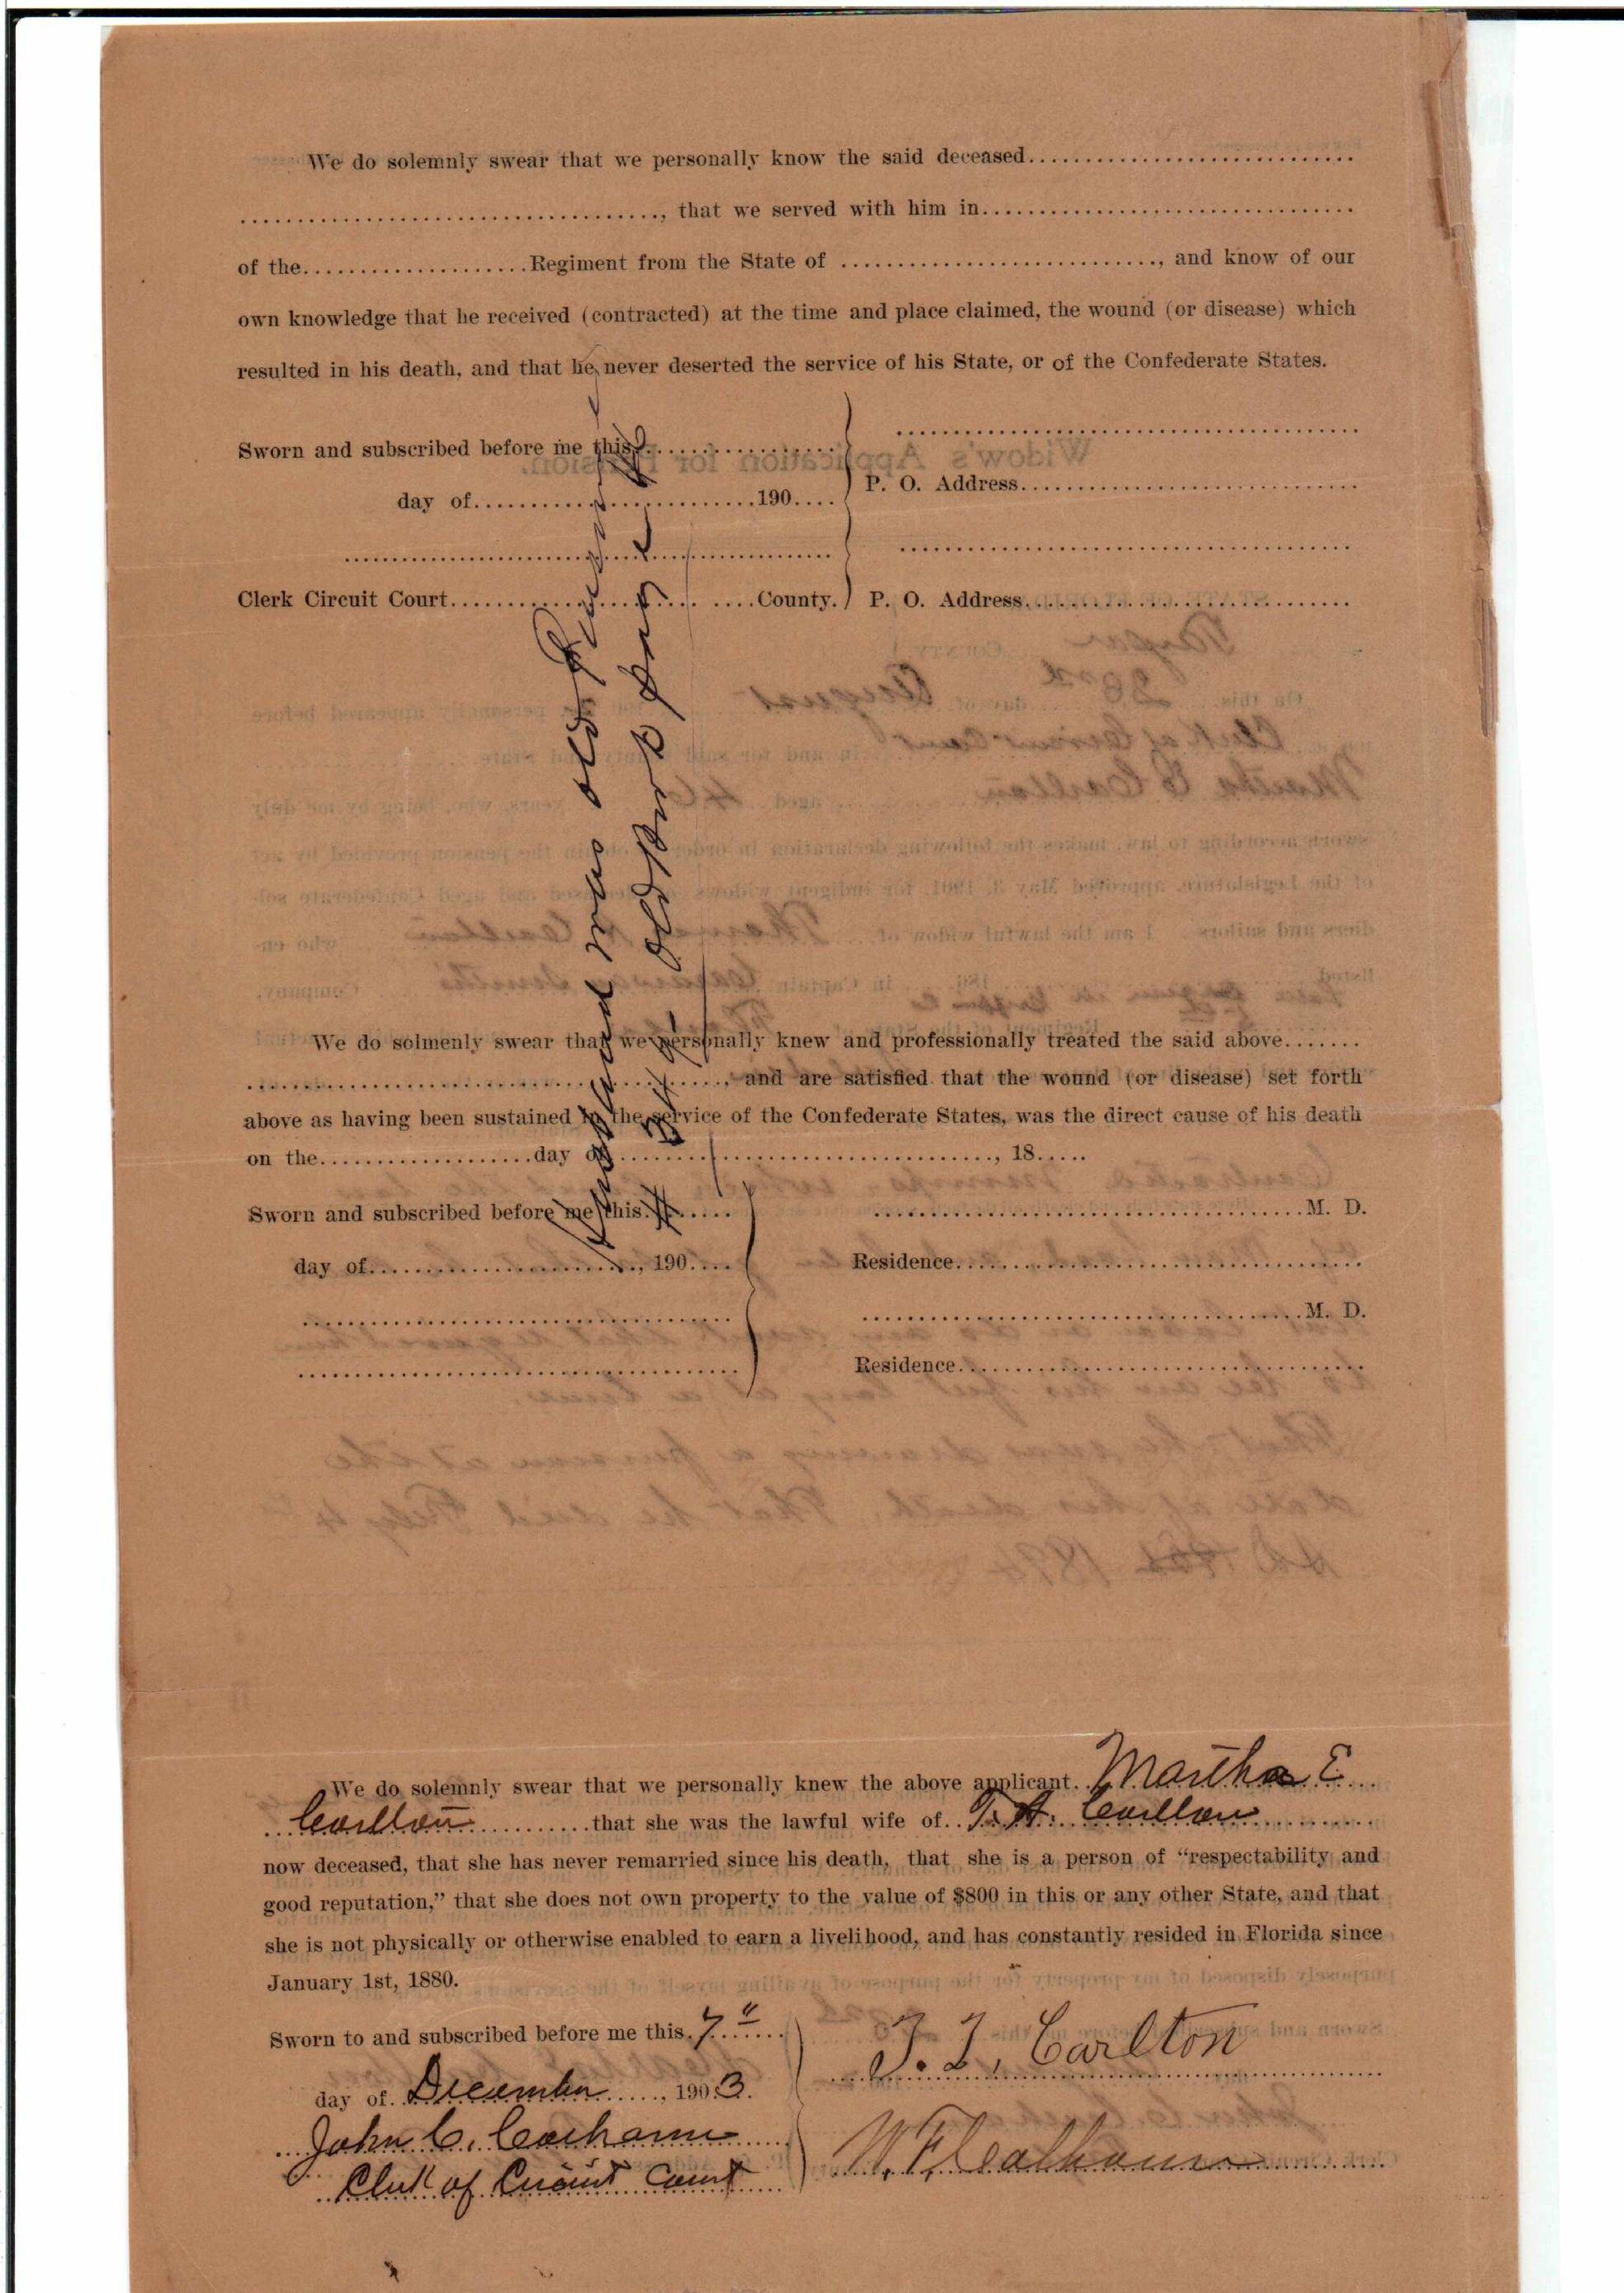 We do solemnly swear that we personally know the said deceased..............................
......................................, that we served with him in..................................
of the....................Regiment from the State of ............................., and know of our
own knowledge that he received (contracted) at the time and place claimed, the wound (or disease) which
resulted in his death, and that he never deserted the service of his State, or of the Confederate States.
Sworn and subscribed before me this....................
day of..........................190....
Clerk Circuit Court............................County.
P. O. Address...............................
P. O. Address...............................
Husband was old
old
We do solmenly swear that we personally knew and professionally treated the said above.......
............................................, and are satisfied that the wound (or disease) set forth
above as having been sustained in the service of the Confederate States, was the direct cause of his death
on the...................day of....................................., 18.....
Sworn and subscribed before me this........
day of........................., 190....
........................................M. D.
Residence......................................
........................................M. D.
Residence......................................
We do solemnly swear that we personally knew the above applicant. Martha E.
Carlton...........that she was the lawful wife of..T. A. Carlton............
now deceased, that she has never remarried since his death, that she is a person of “respectability and
good reputation,” that she does not own property to the value of $800 in this or any other State, and that
she is not physically or otherwise enabled to earn a livelihood, and has constantly resided in Florida since
January 1st, 1880.
Sworn to and subscribed before me this.7"......
day of. December......, 1903.
John C. Calhoun
Clerk of Circuit Court
T. J. Carlton
W. F. Calhoun